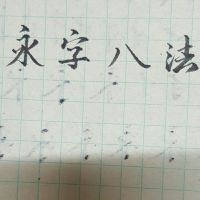 永字八法